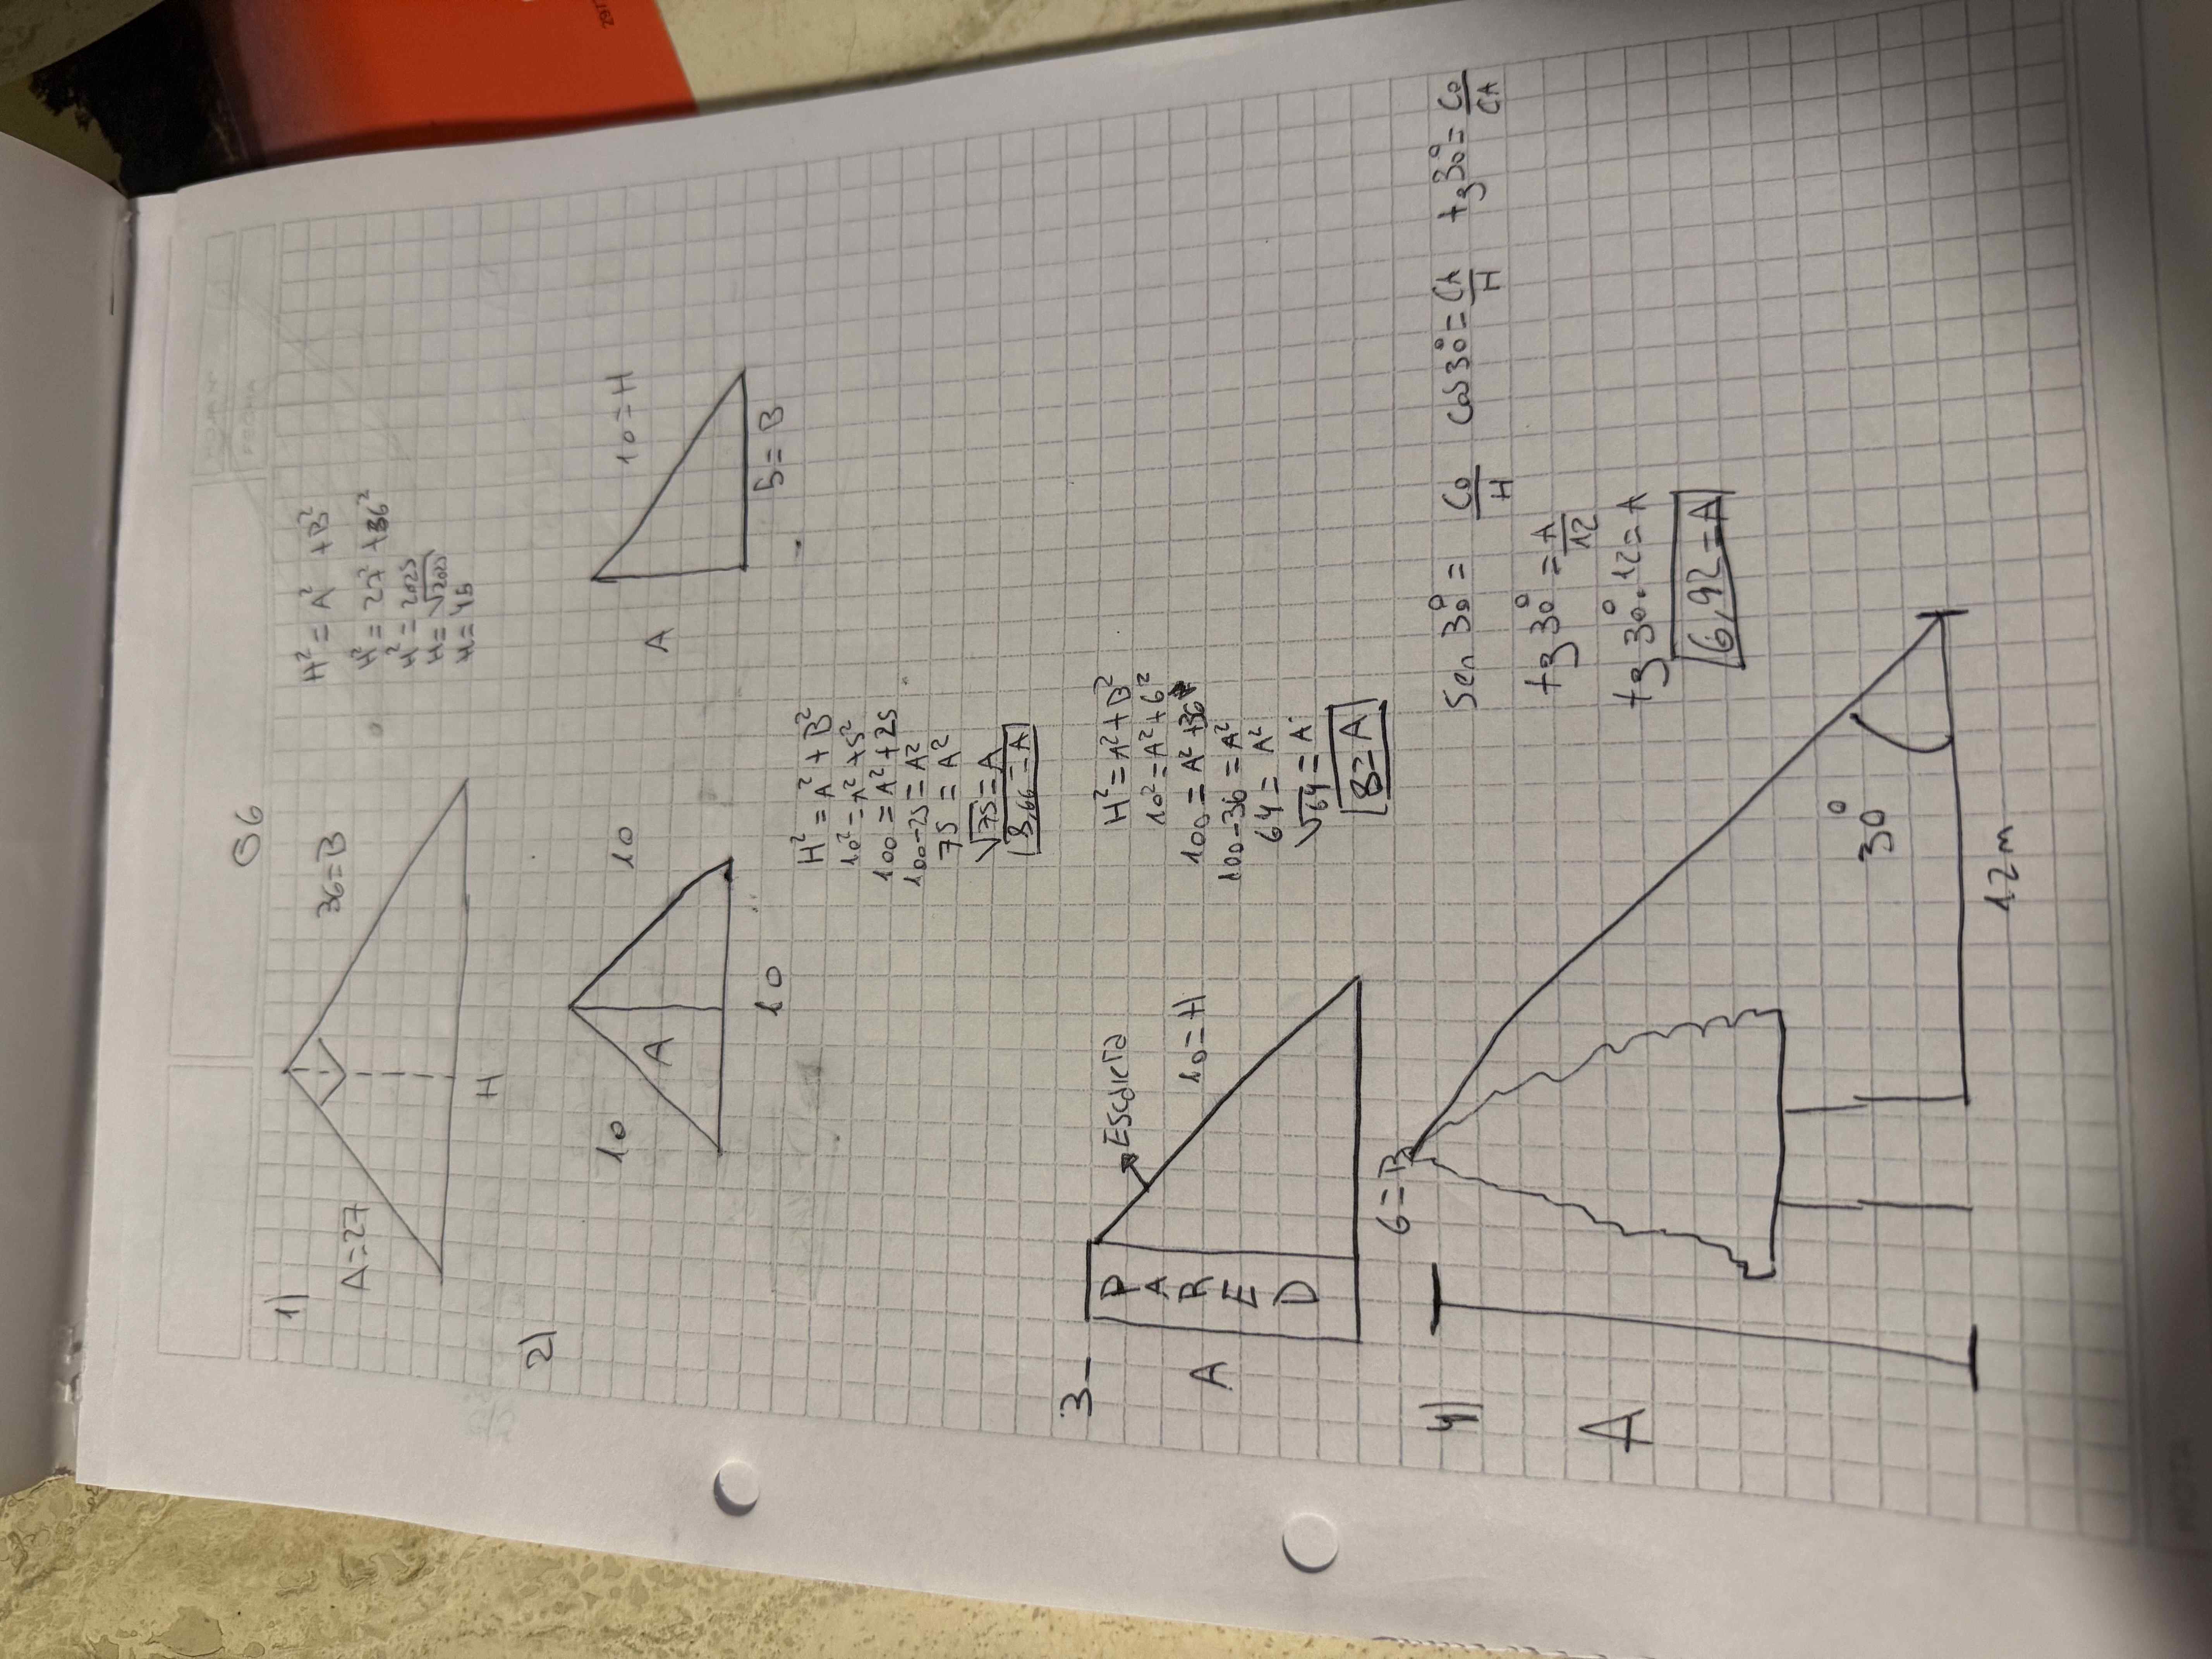 G6
1)
A=27
36=B
H
H² = A² + B²
H² = 27² + 36²
H² = 2025
H = √2025
H = 45
2)
10
A
10
10
A
10=H
5=B
H² = A² + B²
10² = A² + 5²
100 = A² + 25
100-25 = A²
75 = A²
√75 = A
8,66 = A
3-
A
PARED
Escalera
10=H
6=B
H² = A² + B²
10² = A² + 6²
100 = A² + 36
100-36 = A²
64 = A²
√64 = A
8 = A
4)
A
30°
12m
Sen 30° = CO/H Cos 30° = CA/H tg 30° = CO/CA
tg 30° = A/12
tg 30°.12 = A
6,92 = A